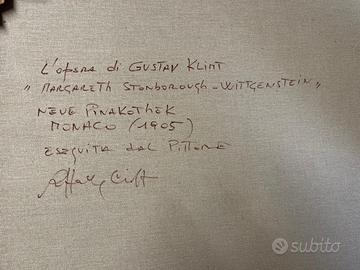 L'opera di GUSTAV KLIMT
"MARGARETH STONBOROUGH-WITTGENSTEIN"
NEUE PINAKOTHEK
MONACO (1905)
ESEGUITA DAL PITTORE
subito